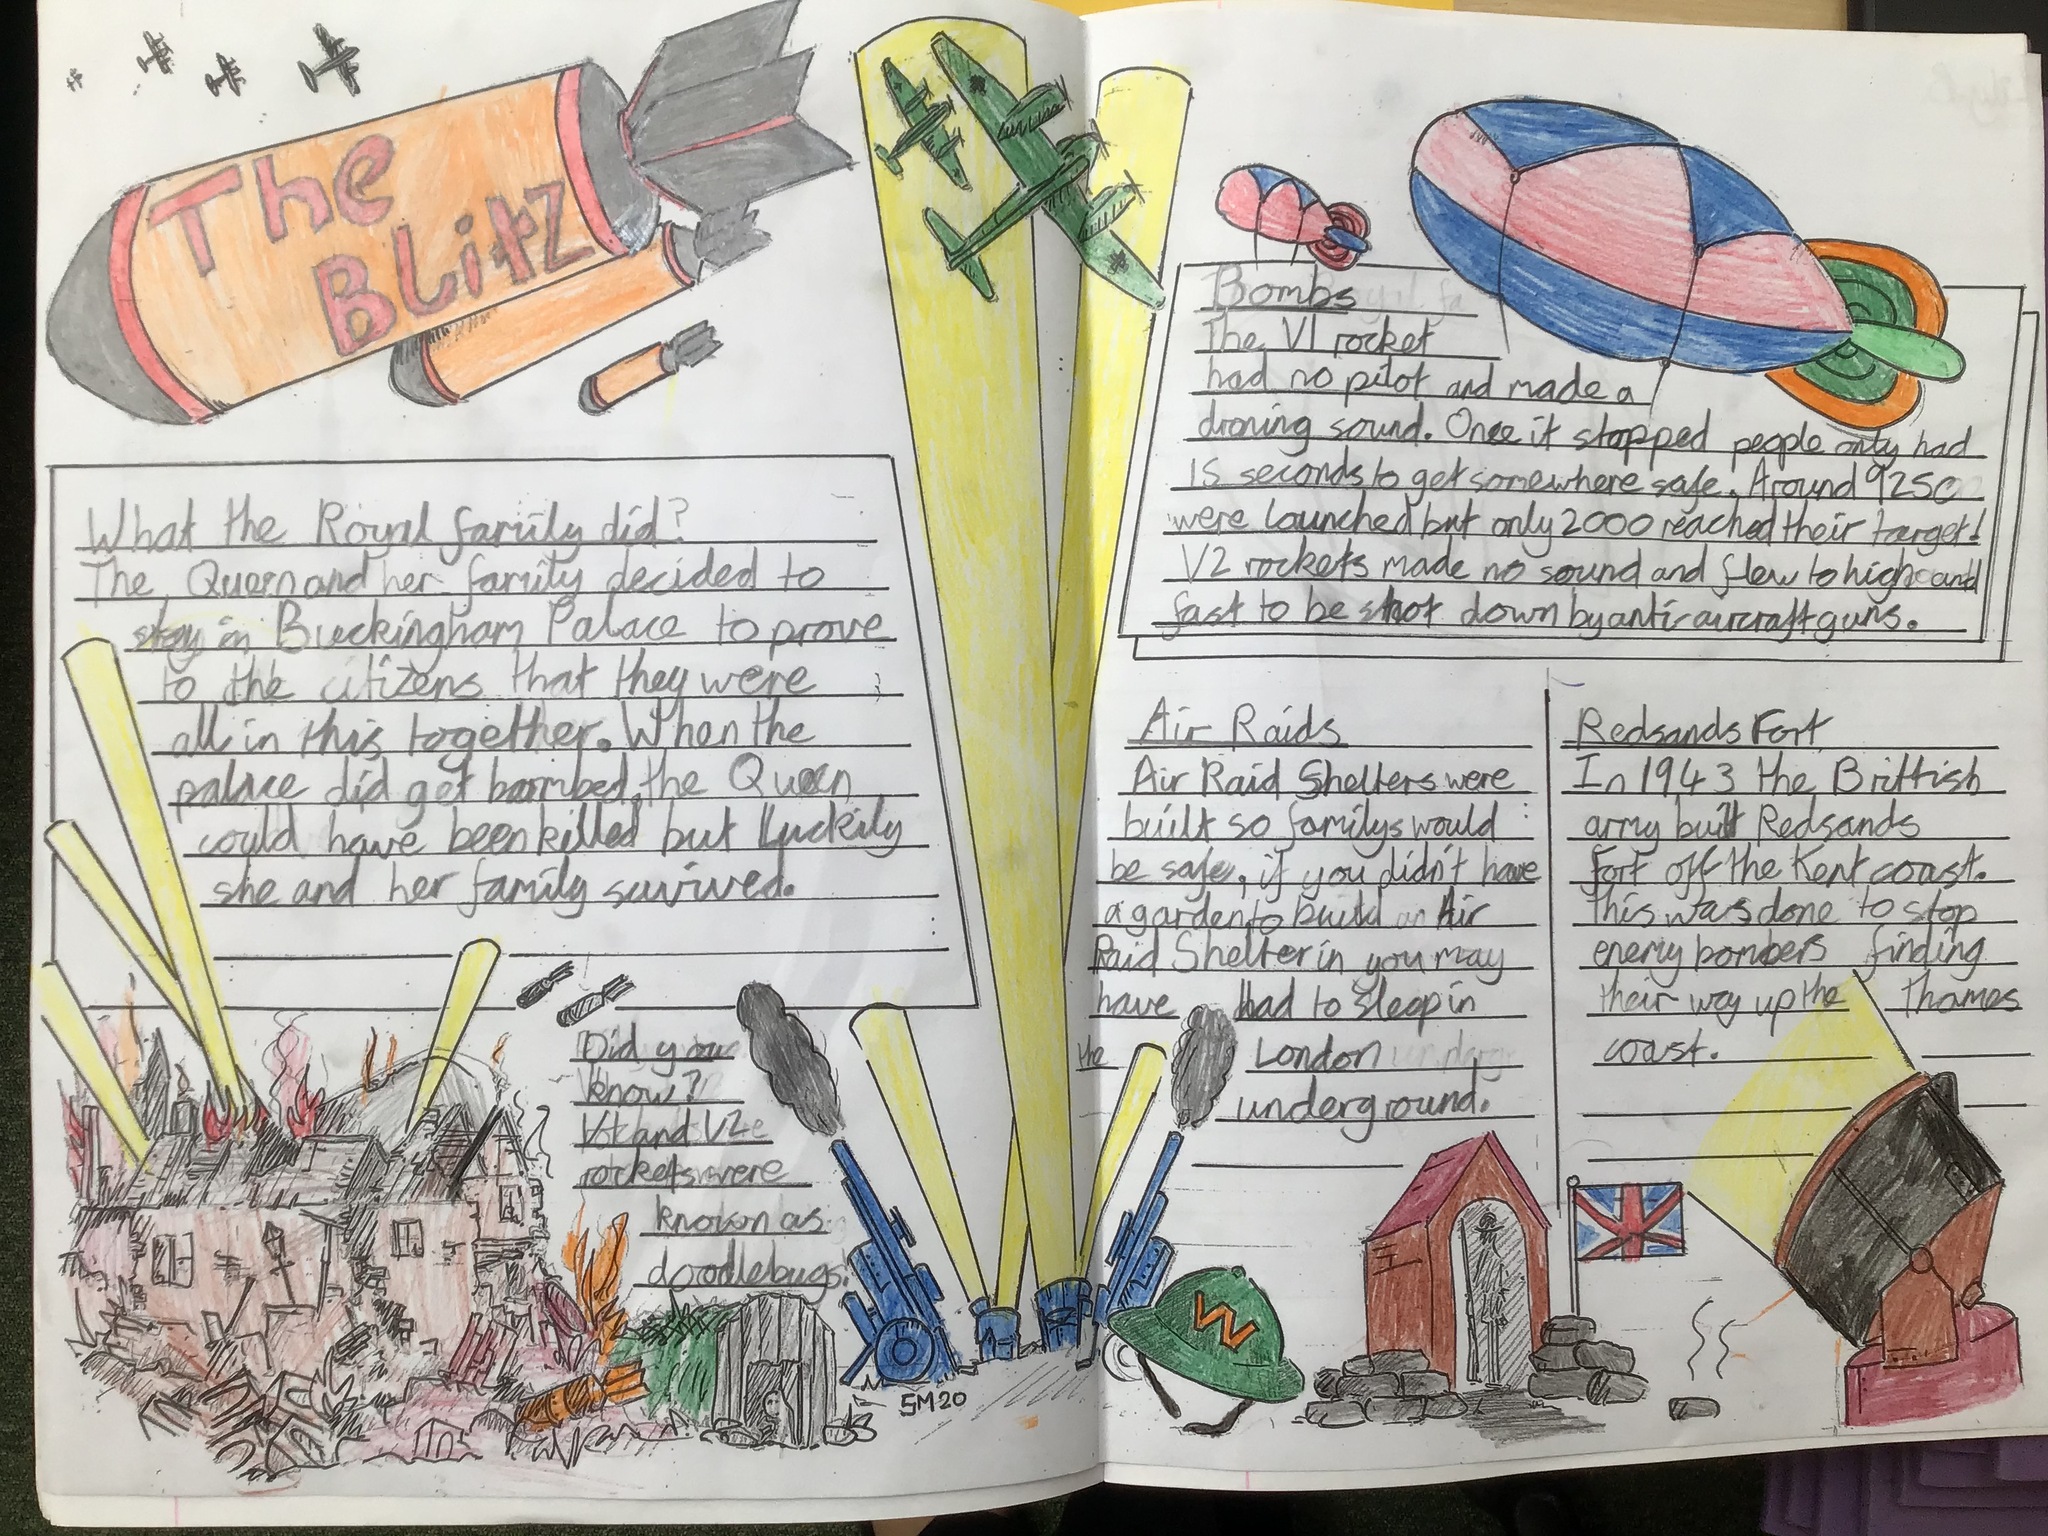 The
Blitz
What the Royal family did?
The Queen and her family decided to
stay in Buckingham Palace to prove
to the citizens that they were
all in this together. When the
palace did get bombed, the Queen
could have been killed but luckily
she and her family survived.
Did you
know?
V1 and V2
rockets were
known as
doodlebugs.
SM20
Bombs
The V1 rocket
had no pilot and made a
droning sound. Once it stopped people only had
15 seconds to get somewhere safe. Around 9250
were launched but only 2000 reached their target!
V2 rockets made no sound and flew to high and
fast to be shot down by anti-aircraft guns.
Air Raids
Air Raid Shelters were
built so familys would
be safe, if you didn't have
a garden to build an Air
Raid Shelter in you may
have had to sleep in
the London
underground.
Redsands Fort
In 1943 the Brittish
army built Redsands
Fort off the Kent coast.
This was done to stop
enemy bombers finding
their way up the Thames
coast.
W